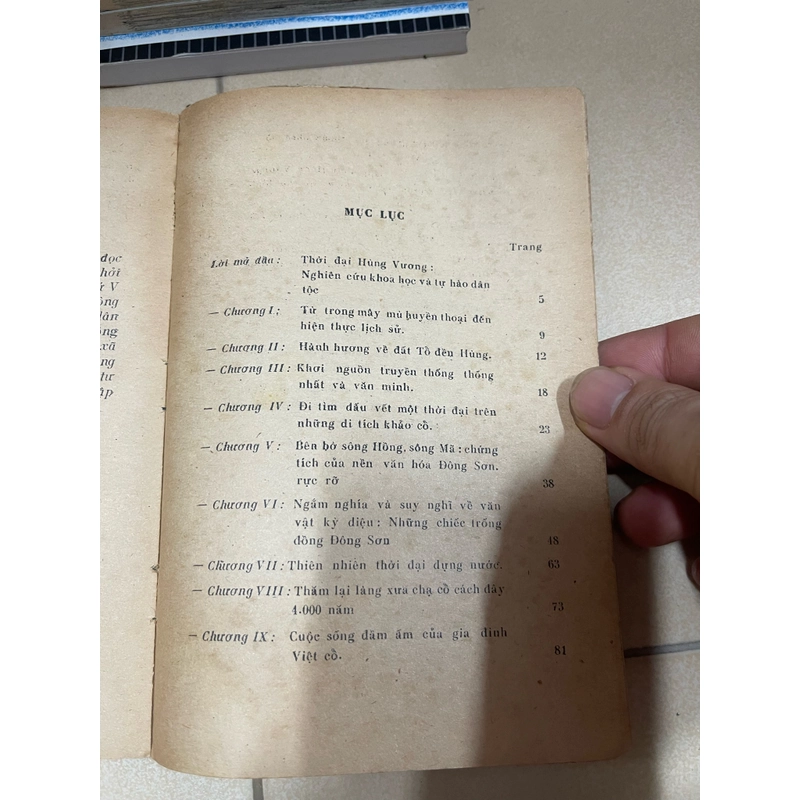 đọc
hời
ử V
ông
dân
ông
xã
ng
tư
áp
MỤC LỤC
Trang
Lời mở đầu: Thời đại Hùng Vương:
Nghiên cứu khoa học và tự hào dân
tộc 5
— Chương I: Từ trong mây mù huyền thoại đến
hiện thực lịch sử. 9
— Chương II: Hành hương về đất Tổ đền Hùng. 12
— Chương III: Khơi nguồn truyền thống thống
nhất và văn minh. 18
— Chương IV: Đi tìm dấu vết một thời đại trên
những di tích khảo cổ. 23
— Chương V: Bên bờ sông Hồng, sông Mã: chứng
tích của nền văn hóa Đông Sơn.
rực rỡ 38
— Chương VI: Ngắm nghía và suy nghĩ về văn
vật kỳ diệu: Những chiếc trống
đồng Đông Sơn 48
— Chương VII: Thiên nhiên thời đại dựng nước. 63
— Chương VIII: Thăm lại làng xưa cha cổ cách đây
4.000 năm 73
— Chương IX: Cuộc sống đầm ấm của gia đình
Việt cổ. 81